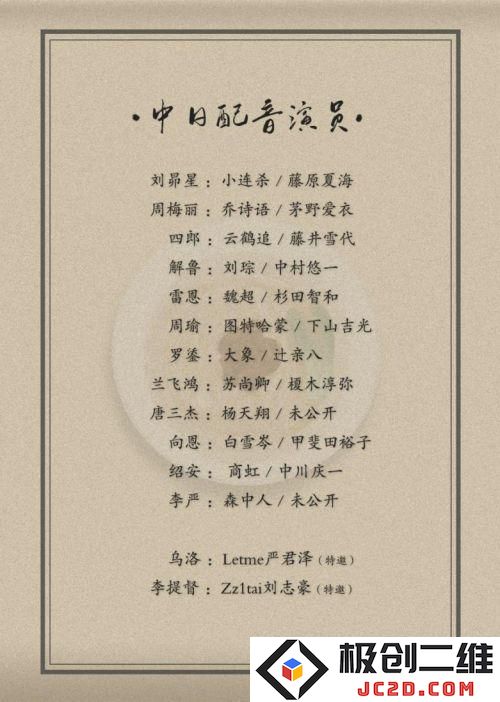 ·中日配音演员·
刘昴星：小连杀 / 藤原夏海
周梅丽：乔诗语 / 茅野爱衣
四郎：云鹤追 / 藤井雪代
解鲁：刘琮 / 中村悠一
雷恩：魏超 / 杉田智和
周瑜：图特哈蒙 / 下山吉光
罗鎏：大象 / 辻亲八
兰飞鸿：苏尚卿 / 榎木淳弥
唐三杰：杨天翔 / 未公开
向恩：白雪岑 / 甲斐田裕子
绍安：商虹 / 中川庆一
李严：森中人 / 未公开
乌洛：Letme严君泽（特邀）
李提督：Zz1tai刘志豪（特邀）
极创二维
JC2D.COM